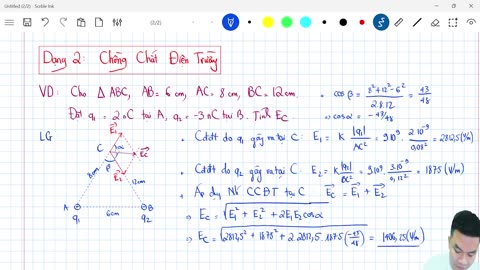 Untitled (2/2) - Scrble Ink
(2/2)
Dạng 2: Chồng Chất Điện Trường
VD: Cho Δ ABC, AB = 6 cm, AC = 8 cm, BC = 12 cm.
Đặt q₁ = 2 nC tại A, q₂ = -3 nC tại B. Tính Ec
• cos β = (8² + 12² - 6²)/(2.8.12) = 43/48
=> cos α = -43/48
LG
E₁
C
α
β
Ec
E₂
8cm
12cm
A
6cm
B
q₁
q₂
• Cđđt do q₁ gây ra tại C: E₁ = K |q₁|/AC² = 9.10⁹ . 2.10⁻⁹/0,08² = 2812,5 (V/m)
• Cđđt do q₂ gây ra tại C: E₂ = K |q₂|/BC² = 9.10⁹ . 3.10⁻⁹/0,12² = 1875 (V/m)
• Áp dụng NL CCĐT tại C Ec = E₁ + E₂
=> Ec = √(E₁² + E₂² + 2E₁E₂cosα)
=> Ec = √(2812,5² + 1875² + 2.2812,5.1875.(-43/48)) = 1406,25 (V/m)